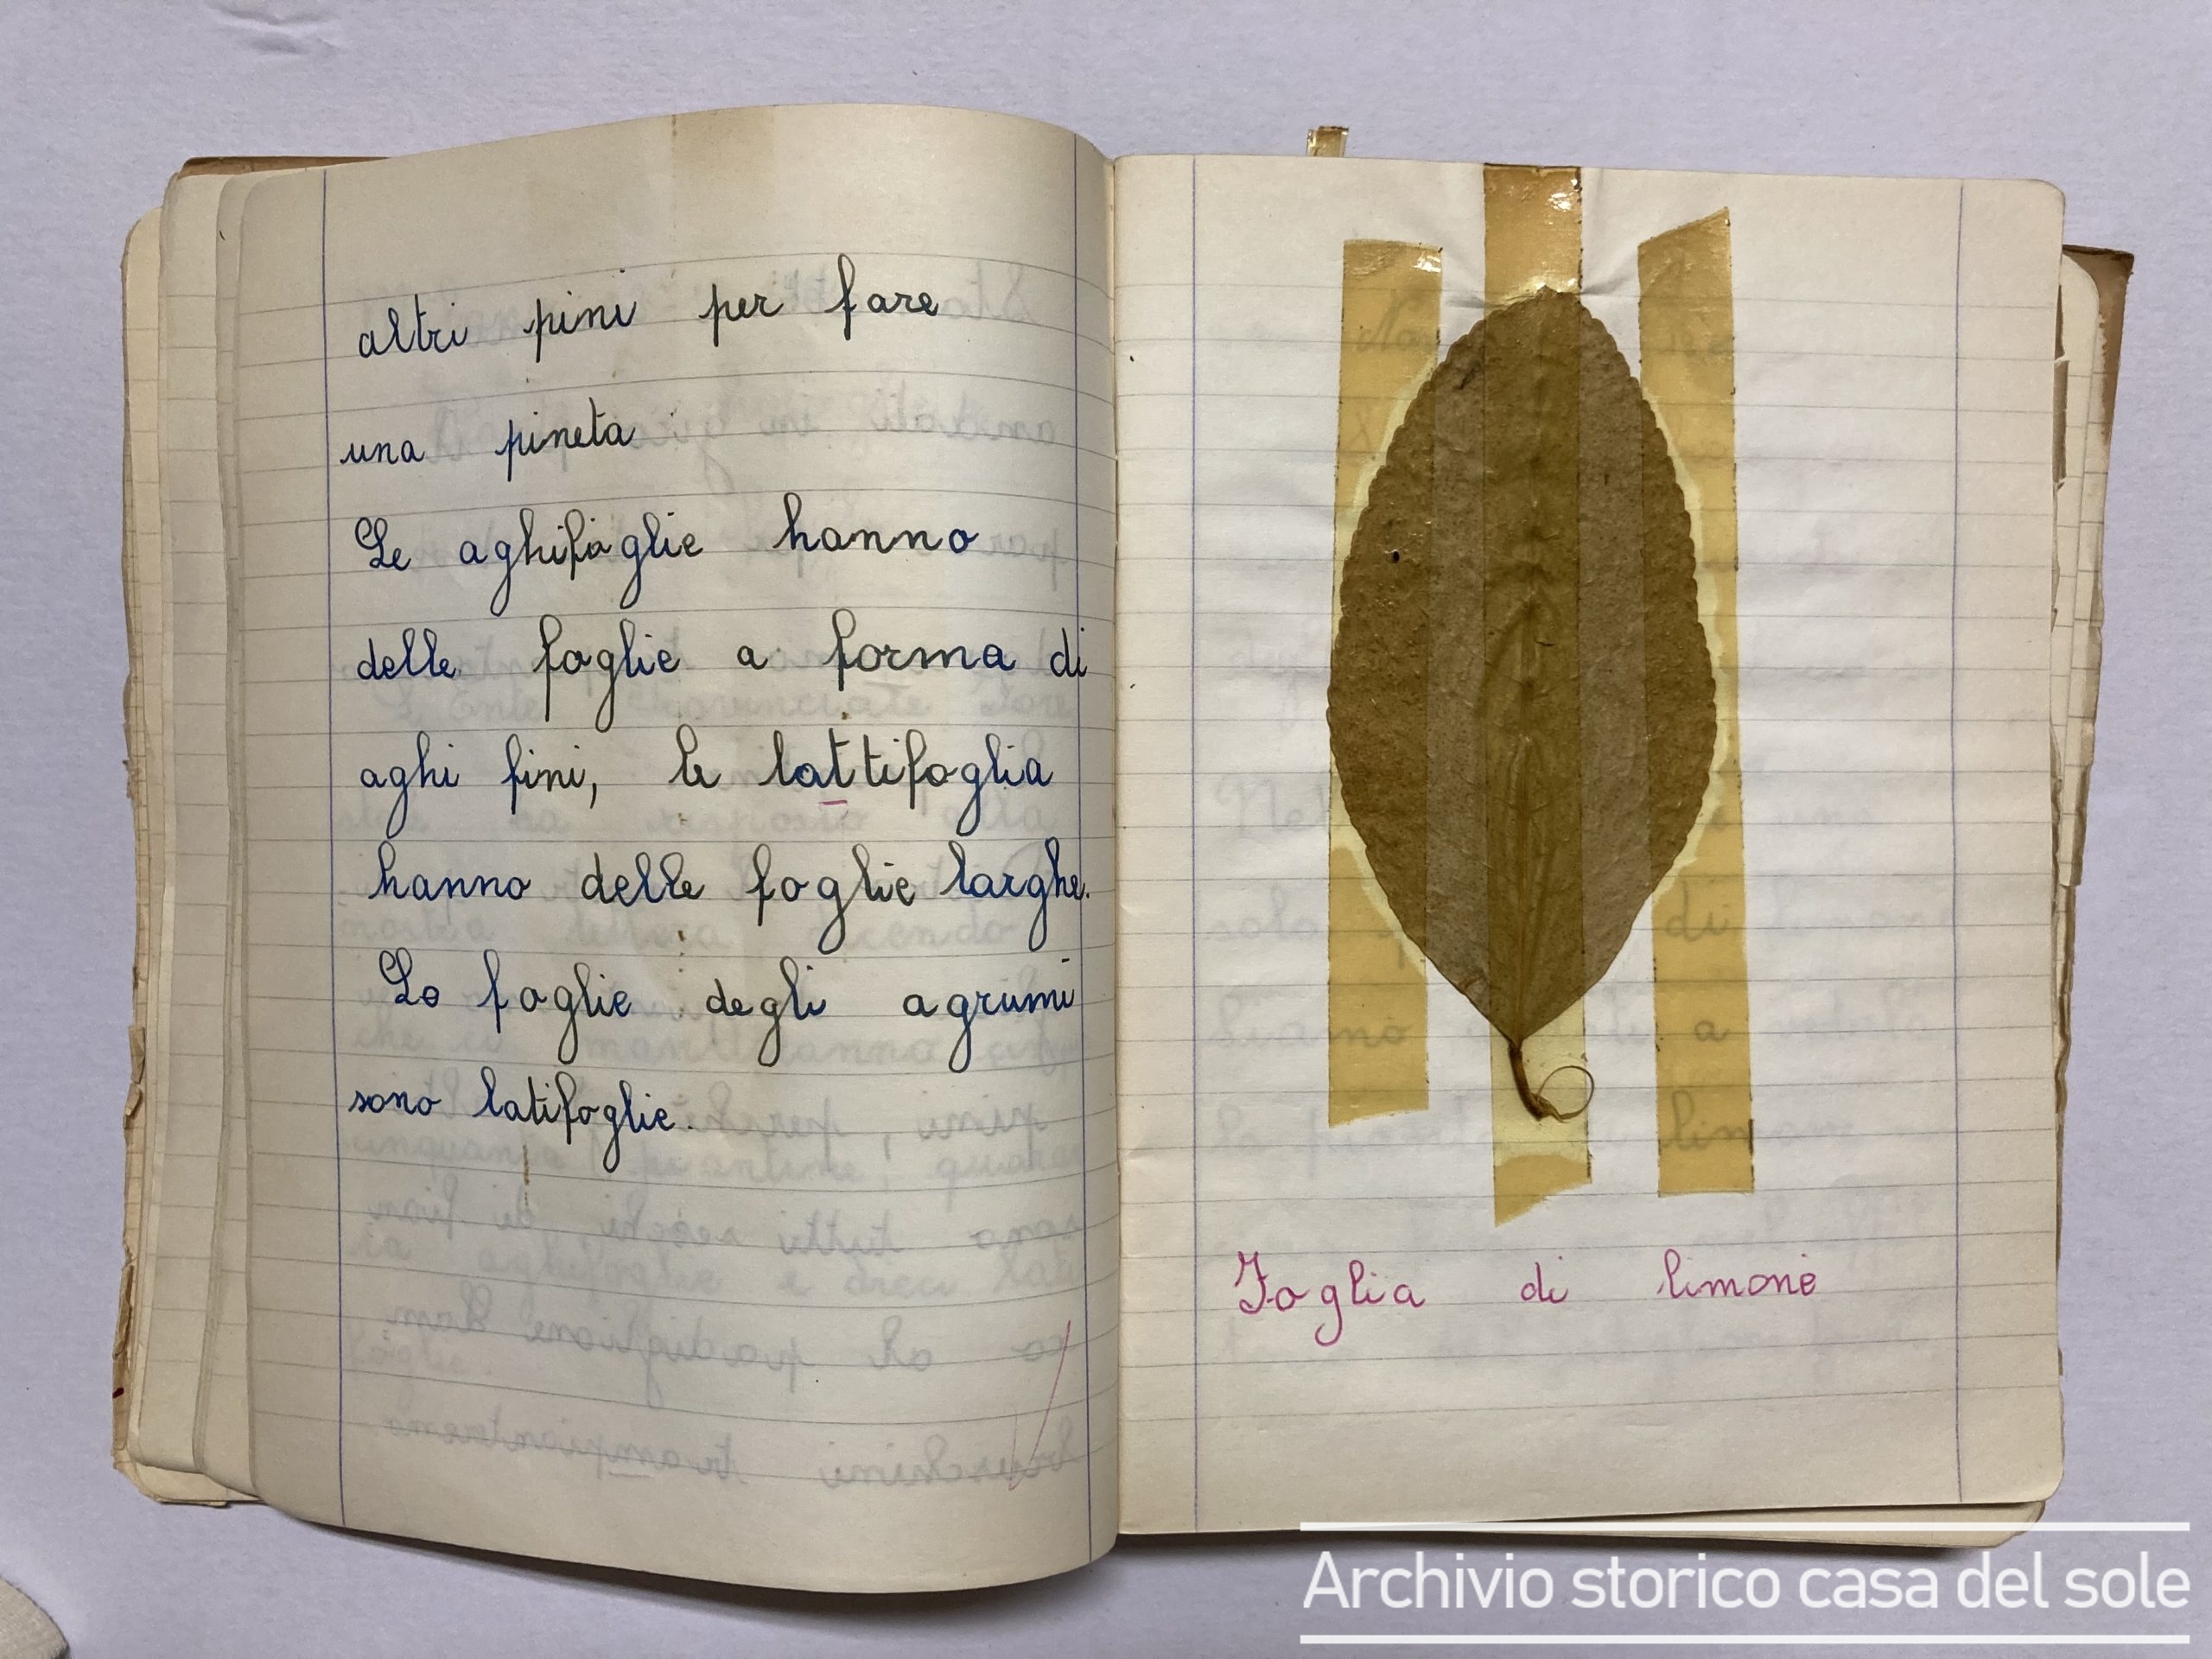 altri pini per fare
una pineta
Le aghifoglie hanno
delle foglie a forma di
aghi fini, le lattifoglia
hanno delle foglie larghe.
Le foglie degli agrumi
sono latifoglie.
Foglia di limone
Archivio storico casa del sole